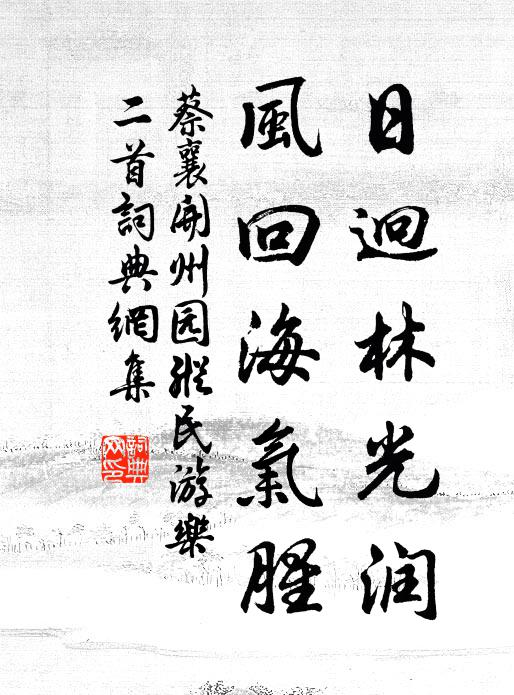 日迥林光润
風回海氣腥
蔡襄開州园縱民游樂
二首詞典網集
詞典网印